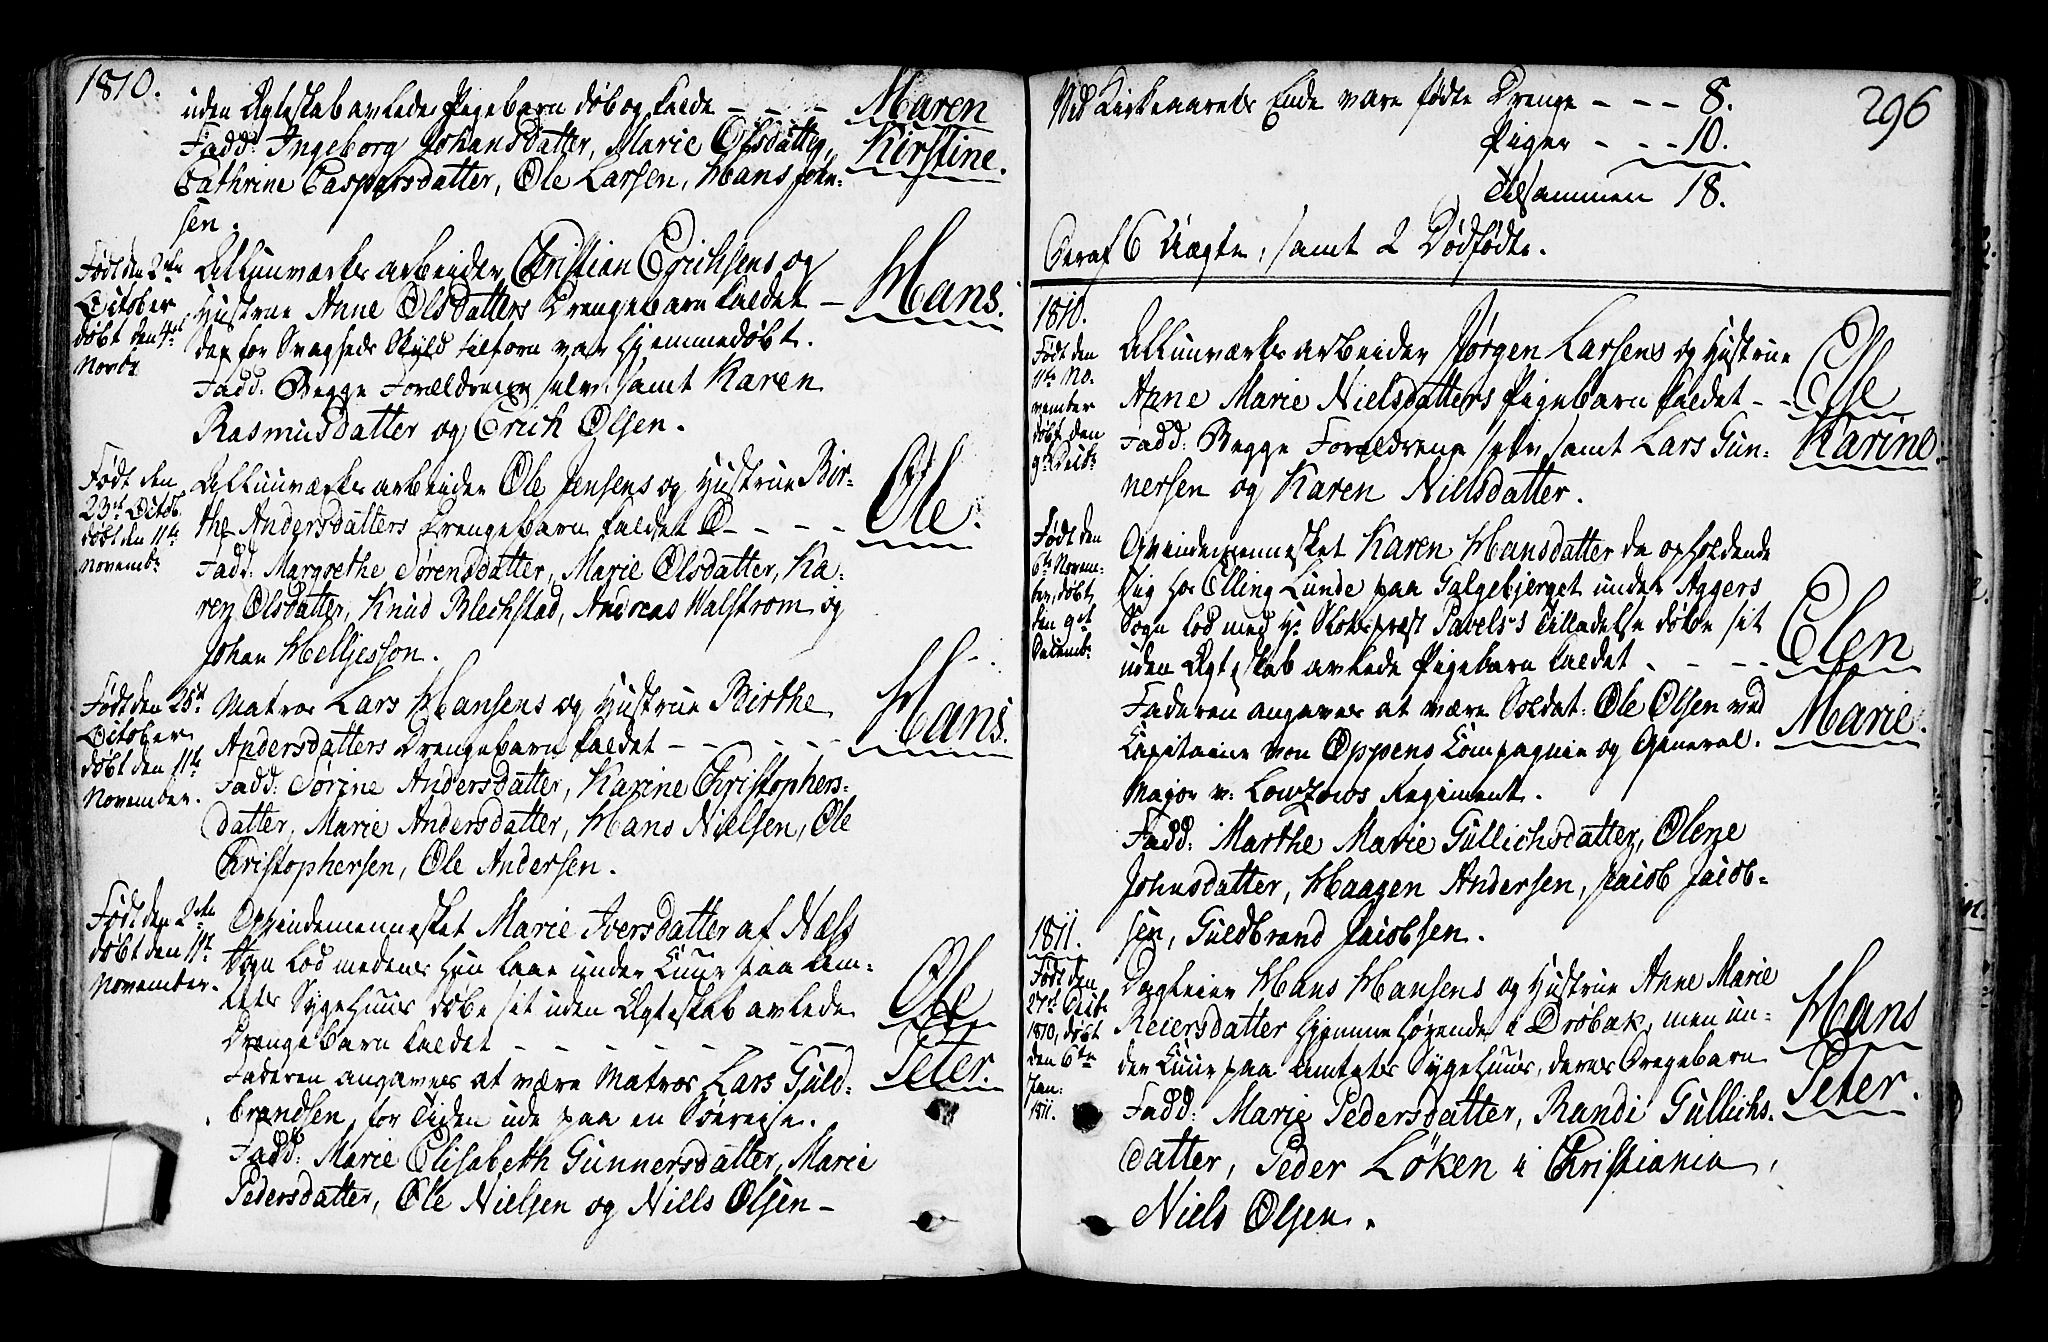 1810.
uden Ægteskab avlede Pigebarn døb og kalde - - - Maren
Fadd: Ingeborg Johansdatter, Marie Olsdatter, Kirstine.
Cathrine Caspersdatter, Ole Larsen, Hans John-
sen.
Født den 2den
October
døbt den 4de
Novbr
Allunværks arbeider Christian Erichsens og
Hustrue Anne Olsdatters Drengebarn kaldet - Hans.
der for Svagheds Skyld tilforn var hjemmedøbt.
Fadd: Begge Forældrene selv samt Karen
Rasmusdatter og Erich Olsen.
Født den
23de Octob.
døbt den 11te
Novembr
Allunværks arbeider Ole Jensens og Hustrue Bir-
the Andersdatters Drengebarn kaldet - - - - Ole.
Fadd: Margrethe Sørensdatter, Marie Olsdatter, Ka-
ren Olsdatter, Knud Blechstad, Andreas Walstrøm og
Johan Helljesson.
Født den 25de
October
døbt den 11te
November.
Matros Lars Hansens og Hustrue Birthe
Andersdatters Drengebarn kaldet - - - - - Hans.
Fadd: Sørine Andersdatter, Karine Christophers-
datter, Marie Andersdatter, Hans Nielsen, Ole
Christophersen, Ole Andersen.
Født den 2den
døbt den 11te
November.
Qvindemennesket Marie Iversdatter af Næss
Sogn lod medens hun laae under Cuur paa Am-
tets Sygehuus døbe sit uden Ægteskab avlede Ole
Drengebarn kaldet - - - - - - - Peter.
Faderen angaves at være Matros Lars Guld-
brandsen, for Tiden ude paa en Søereise.
Fadd: Marie Elisabeth Gunnersdatter, Marie
Pedersdatter, Ole Nielsen og Niels Olsen -
296
Ved Kirkeaarets Ende vare fødte Drenge - - - 8.
Piger - - - 10.
Tilsammen 18.
Deraf 6 Uægte, samt 2 Dødfødte.
1810.
Født den
11te No-
vember
døbt den
9de Decbr
Allunværks arbeider Jørgen Larsens og Hustrue
Anne Marie Nielsdatters Pigebarn kaldet - - Else
Fadd: Begge Forældrene selv samt Lars Gun- Karine.
nersen og Karen Nielsdatter.
Født den
6te Novem-
ber, døbt
den 9de
Decembr
Qvindemennesket Karen Hansdatter da opholdende
sig hos Elling Lunde paa Galgebjerget under Aggers
Sogn lod med Hr Slotspræst Pavels's Tilladelse døbe sit
uden Ægteskab avlede Pigebarn kaldet - - - - Elen
Faderen angaves at være Soldat: Ole Olsen ved
Capitaine von Oppens Compagnie og General- Marie.
Major v: Lowzows Regiment.
Fadd: Marthe Marie Gullichsdatter, Olene
Johnsdatter, Haagen Andersen, Jacob Jacob-
sen, Guldbrand Jacobsen.
1811.
Født den
27de Decbr
1810, døbt
den 6te
Jan:
1811.
Dagleier Hans Hansens og Hustrue Anne Marie
Reiersdatter hjemmehørende i Drøbak, men un- Hans
der Cuur paa Amtets Sygehuus, deres Drengebarn Peter.
Fadd: Marie Pedersdatter, Randi Gullichs-
datter, Peder Løken i Christiania,
Niels Olsen.